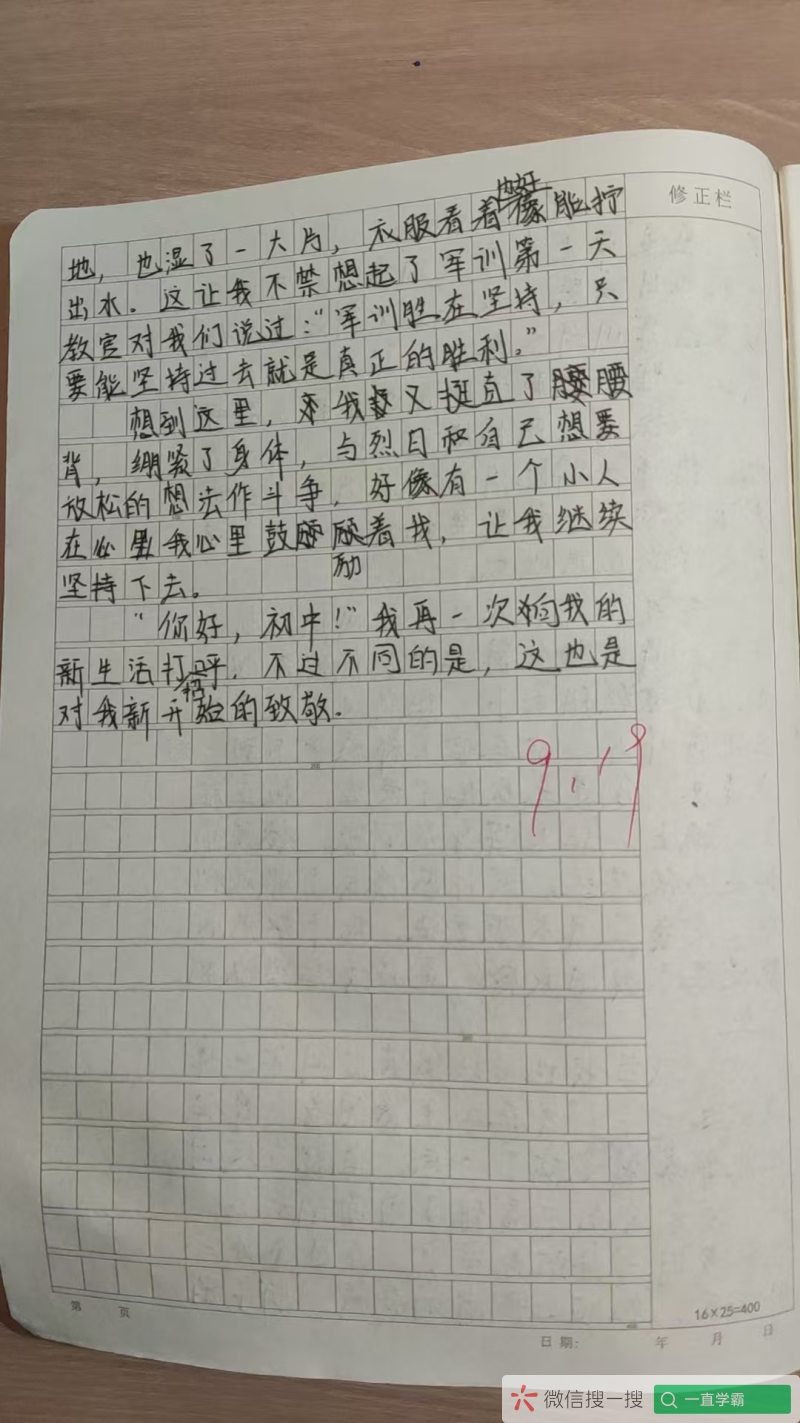 修正栏
地，也湿了一大片，衣服看着好像能拧
出水。这让我不禁想起了军训第一天
教官对我们说过："军训胜在坚持，只
要能坚持过去就是真正的胜利。"
想到这里，我又挺直了腰
背，绷紧了身体，与烈日和自己想要
放松的想法作斗争，好像有一个小人
在我心里鼓励着我，让我继续
坚持下去。
"你好，初中！"我再一次向我的
新生活打招呼，不过不同的是，这也是
对我新开始的致敬。
9.19
第 页
16×25=400
日期： 年 月 日
微信搜一搜
一直学霸